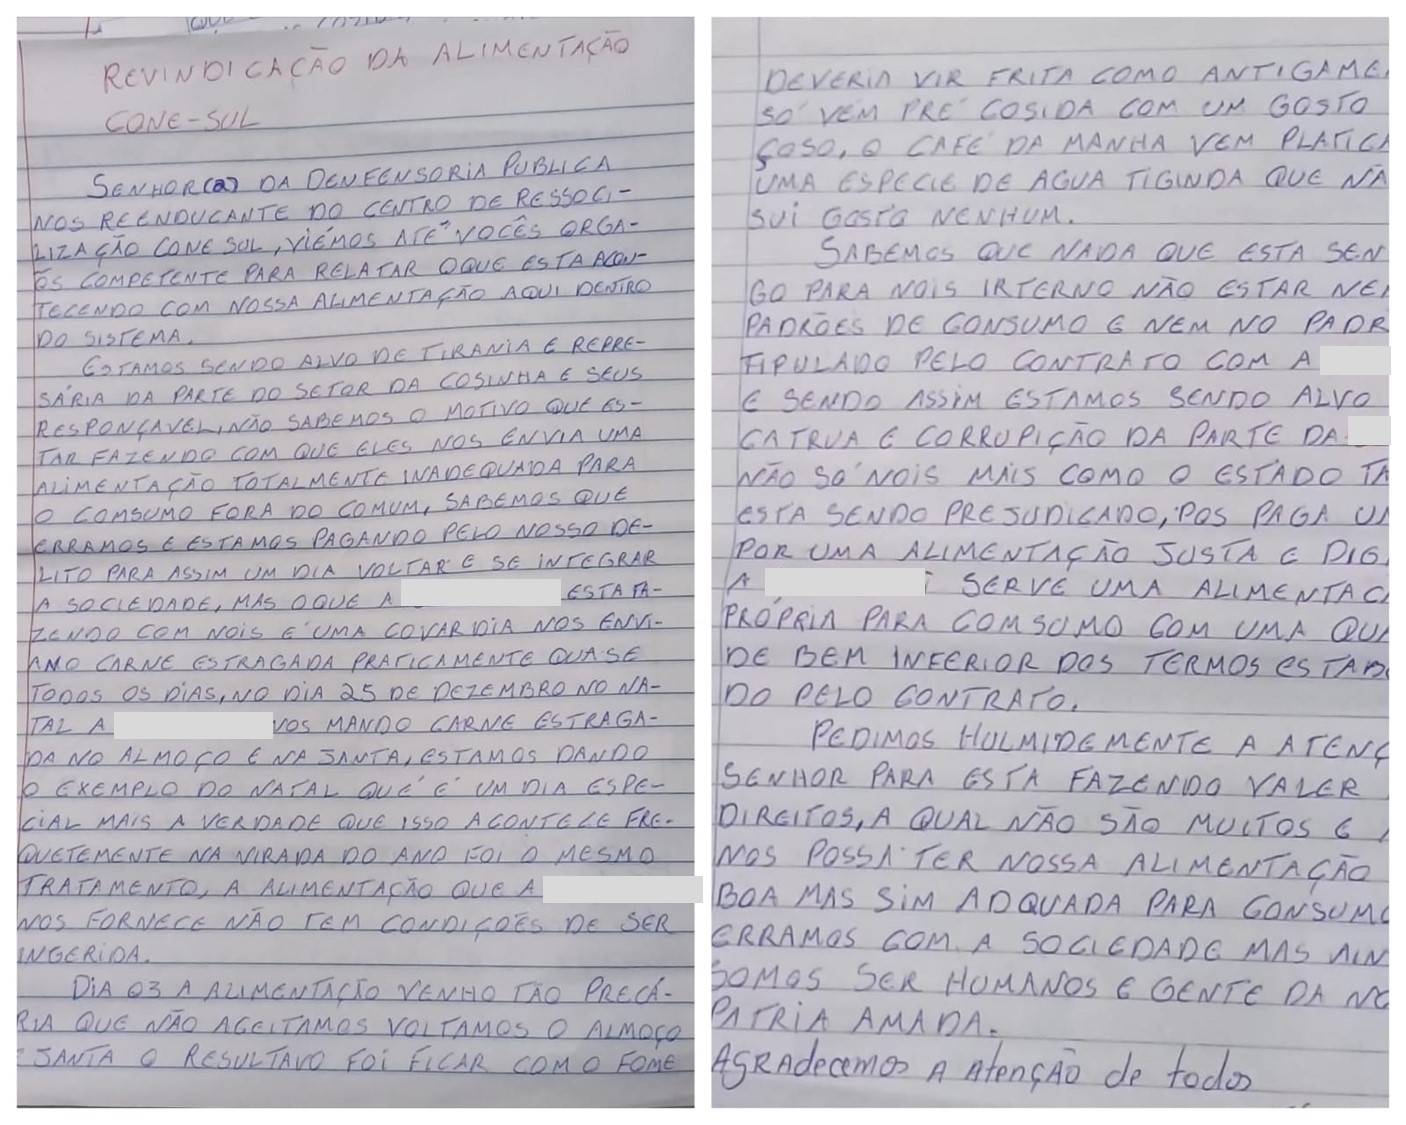 REVINDICAÇÃO DA ALIMENTAÇÃO
CONE-SUL
SENHOR(a) DA DENFENSORIA PUBLICA
NOS REENDUCANTE DO CENTRO DE RESSOCI-
LIZAÇÃO CONE SUL, VIÉMOS ATÉ VOCÊS ORGA-
ÕS COMPETENTE PARA RELATAR OQUE ESTA ACON-
TECENDO COM NOSSA ALIMENTAÇÃO AQUI DENTRO
DO SISTEMA.
ESTAMOS SENDO ALVO DE TIRANIA E REPRE-
SÁRIA DA PARTE DO SETOR DA COSINHA E SEUS
RESPONÇAVEL, NÃO SABEMOS O MOTIVO QUE ES-
TAR FAZENDO COM QUE ELES NOS ENVIA UMA
ALIMENTAÇÃO TOTALMENTE INADEQUADA PARA
O COMSUMO FORA DO COMUM, SABEMOS QUE
ERRAMOS E ESTAMOS PAGANDO PELO NOSSO DE-
LITO PARA ASSIM UM DIA VOLTAR E SE INTEGRAR
A SOCIEDADE, MAS OQUE A ESTA FA-
ZENDO COM NOIS E' UMA COVARDIA NOS ENVI-
ANO CARNE ESTRAGADA PRATICAMENTE QUASE
TODOS OS DIAS, NO DIA 25 DE DEZEMBRO NO NA-
TAL A NOS MANDO CARNE ESTRAGA-
DA NO ALMOÇO E NA JANTA, ESTAMOS DANDO
O EXEMPLO DO NATAL QUE É UM DIA ESPE-
CIAL MAIS A VERDADE QUE ISSO ACONTECE FRE-
QUETEMENTE NA VIRADA DO ANO FOI O MESMO
TRATAMENTO, A ALIMENTAÇÃO QUE A
NOS FORNECE NÃO TEM CONDIÇÕES DE SER
INGERIDA.
DIA 03 A ALIMENTAÇÃO VENHO TÃO PRECÁ-
RIA QUE NÃO ACEITAMOS VOLTAMOS O ALMOÇO
E JANTA O RESULTAVO FOI FICAR COM O FOME
DEVERIA VIR FRITA COMO ANTIGAME
SO' VEM PRE' COSIDA COM UM GOSTO
ÇOSO, O CAFE' DA MANHA VEM PLATICA
UMA ESPECIE DE AGUA TIGINDA QUE NÃ
SUI GOSTO NENHUM.
SABEMOS QUE NADA QUE ESTA SEN
GO PARA NOIS IRTERNO NÃO ESTAR NE
PADRÕES DE CONSUMO E NEM NO PADR
TIPULADO PELO CONTRATO COM A
E SENDO ASSIM ESTAMOS SENDO ALVO
CATRUA E CORRUPIÇÃO DA PARTE DA
NÃO SO' NOIS MAIS COMO O ESTADO TA
ESTA SENDO PREJUDICADO, POS PAGA U
POR UMA ALIMENTAÇÃO JUSTA E DIG
A SERVE UMA ALIMENTAC
PRÓPRIA PARA COMSUMO COM UMA QUA
DE BEM INFERIOR DOS TERMOS ESTAB
DO PELO CONTRATO.
PEDIMOS HULMIDEMENTE A ATENÇ
SENHOR PARA ESTA FAZENDO VALER
DIREITOS, A QUAL NÃO SÃO MUITOS E
NOS POSSA TER NOSSA ALIMENTAÇÃO
BOA MAS SIM ADQUADA PARA CONSUMO
ERRAMOS COM A SOCIEDADE MAS AIN
SOMOS SER HUMANOS E GENTE DA NO
PATRIA AMADA.
AGRADecemos A AtençÃo de todos